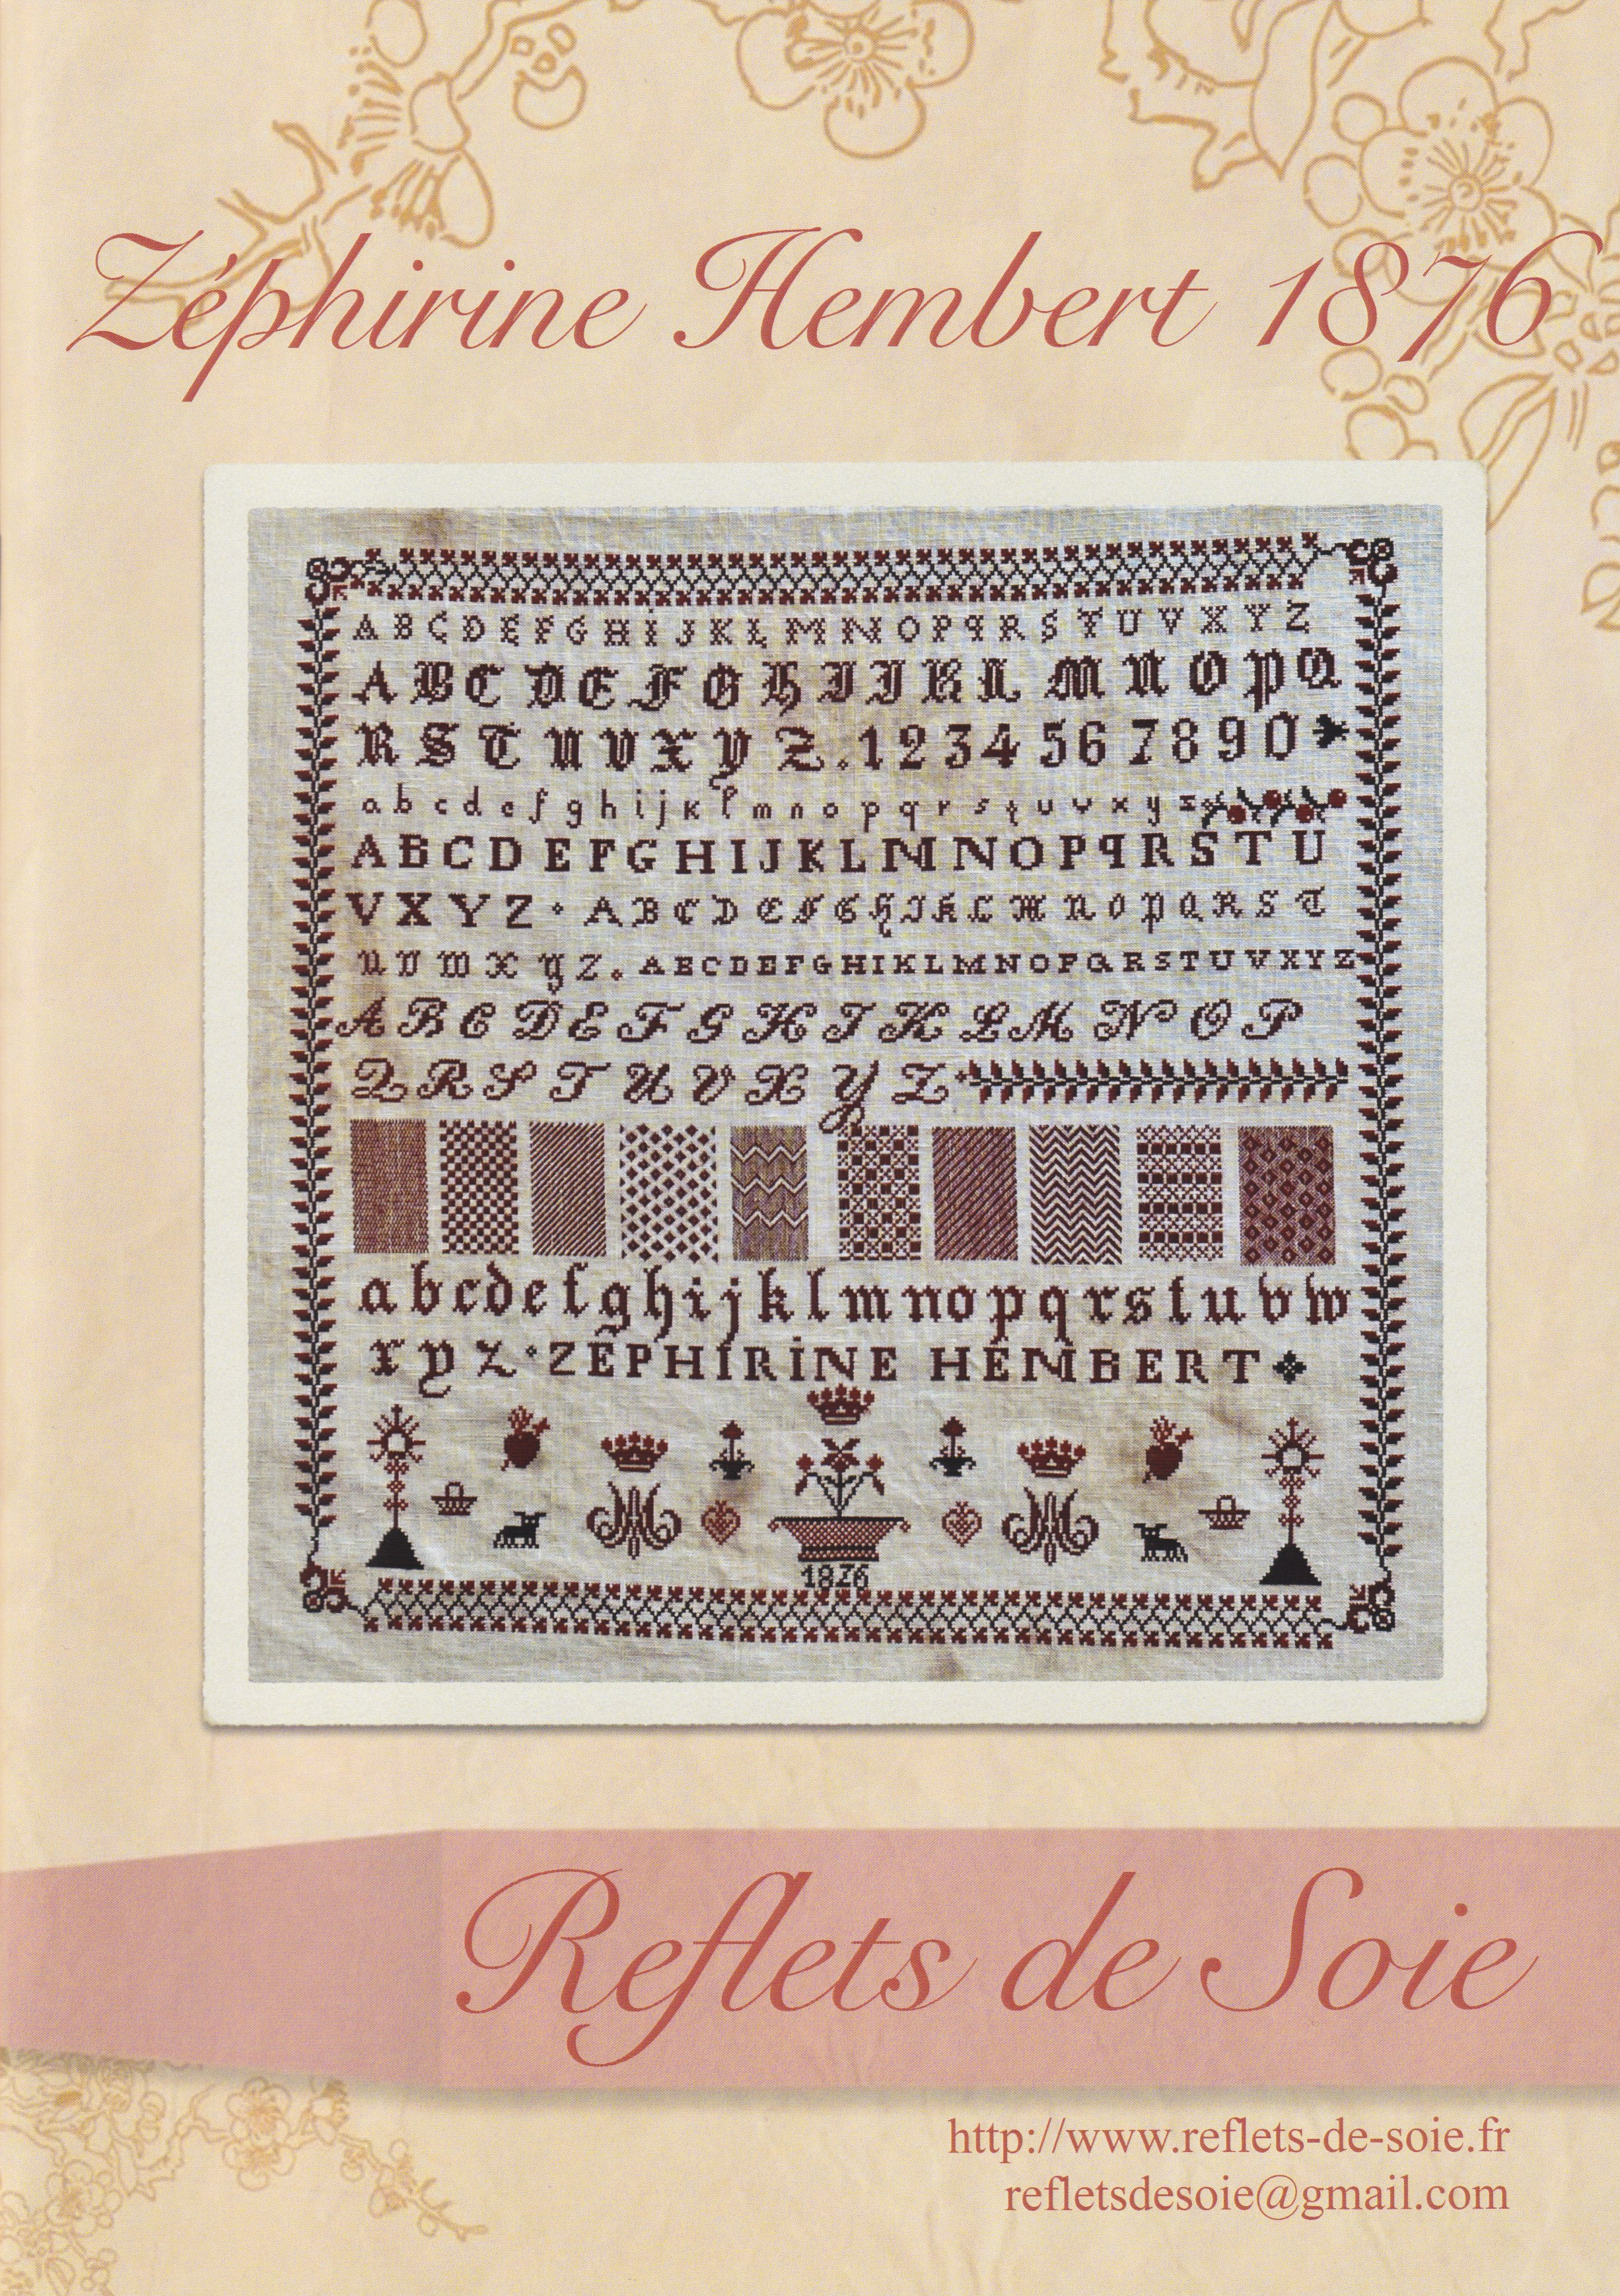 Zéphirine Hembert 1876
A B C D E F G H I J K L M N O P q R S T U V X Y Z
A B C D E F G H I J K L M N O P Q
R S T U V X Y Z . 1 2 3 4 5 6 7 8 9 0
a b c d e f g h i j k l m n o p q r s t u v x y z
A B C D E F G H I J K L M N O P q R S T U
V X Y Z · A B C D E F G H I K L M N O P Q R S T
U V W X Y Z . A B C D E F G H I K L M N O P Q R S T U V X Y Z
A B C D E F G H I K L M N O P
Q R S T U V X Y Z
a b c d e f g h i j k l m n o p q r s t u v w
x y z · ZÉPHIRINE HEMBERT
1876
Reflets de Soie
http://www.reflets-de-soie.fr
refletsdesoie@gmail.com